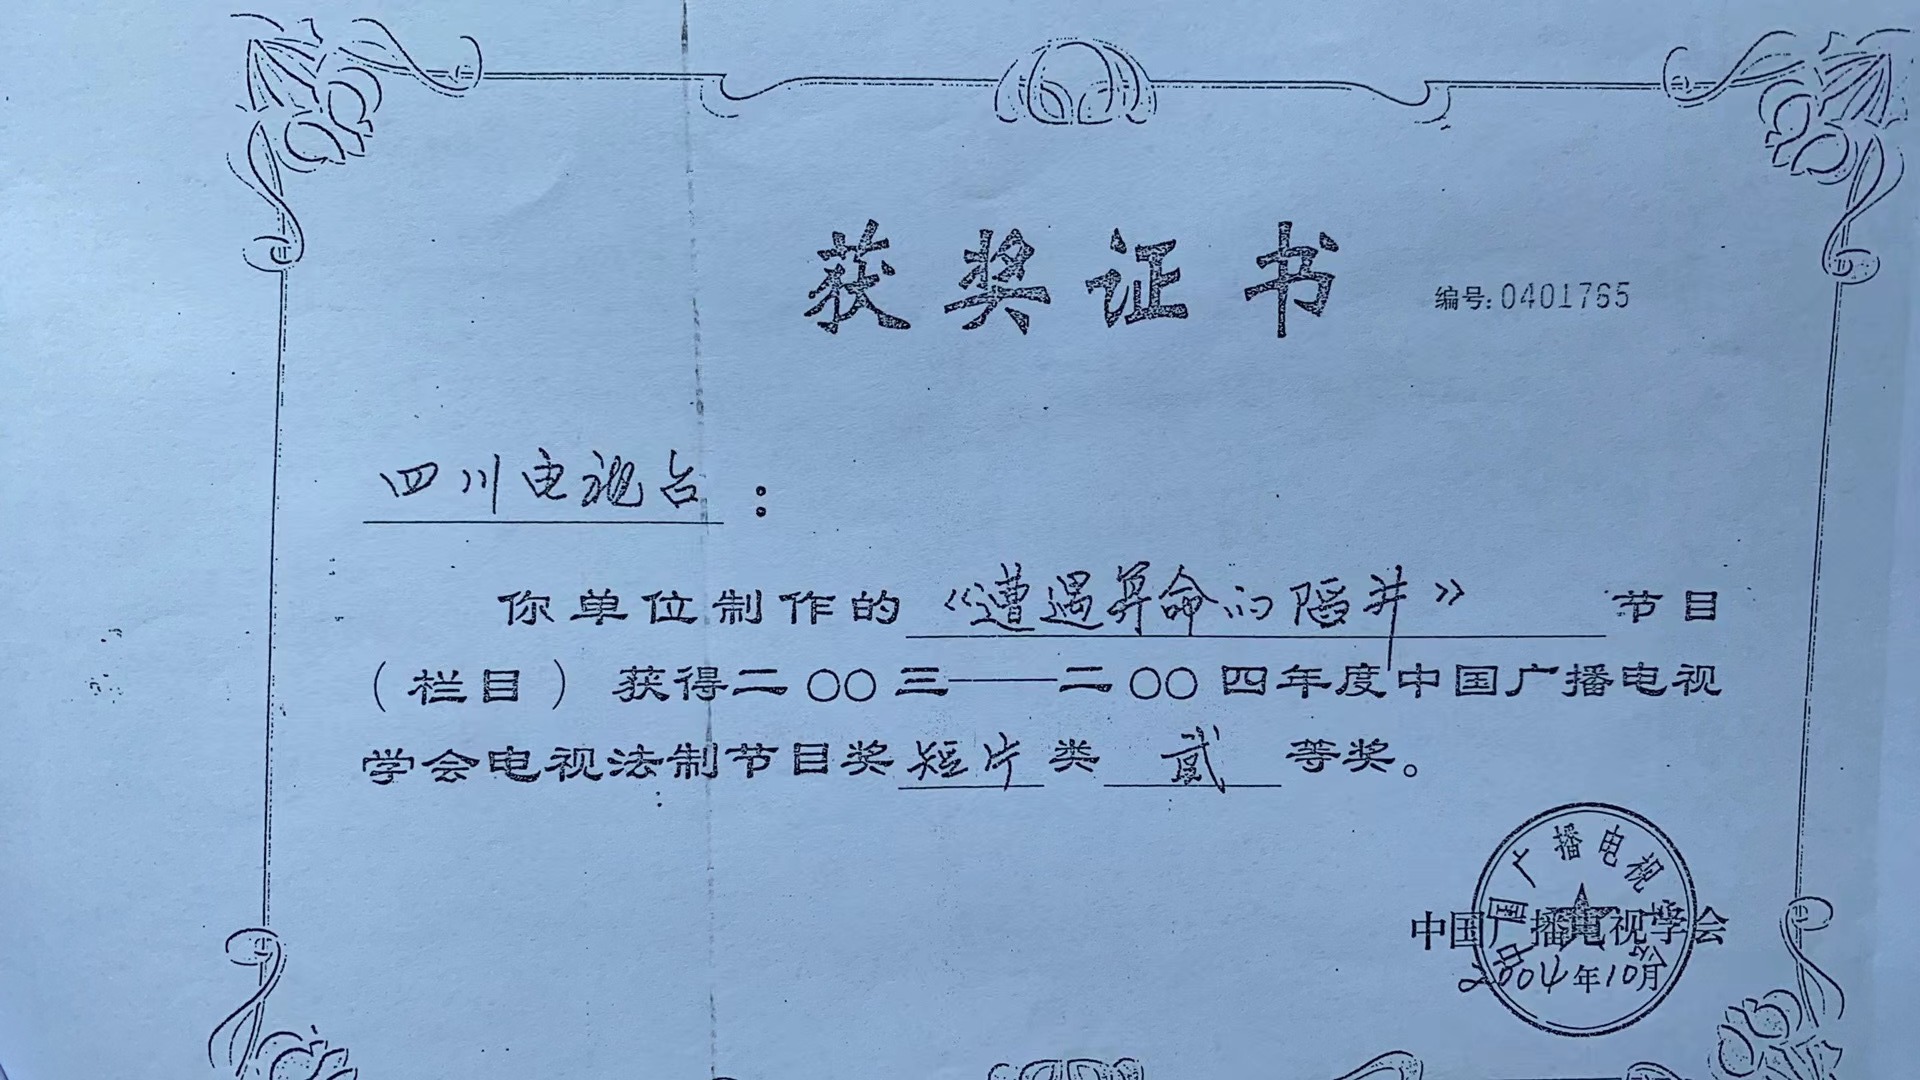 获奖证书
编号:0401765
四川电视台：
你单位制作的《遭遇算命的陷井》节目
（栏目）获得二〇〇三——二〇〇四年度中国广播电视
学会电视法制节目奖短片类贰等奖。
中国广播电视学会
中国广播电视学会
2004年10月